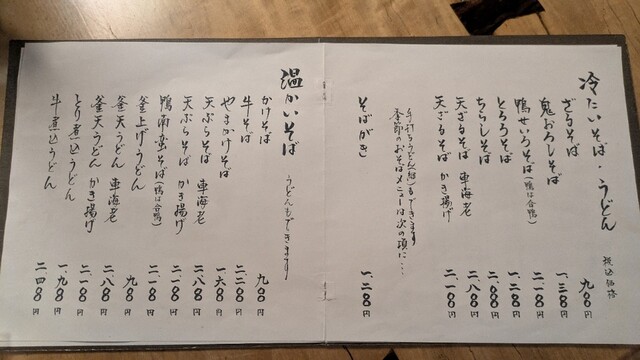 冷たいそば・うどん
税込価格
ざるそば 九〇〇円
鬼おろしそば 一、三〇〇円
鴨せいろそば(鴨は合鴨) 二、一〇〇円
とろろそば 一、二〇〇円
ちらしそば 二、一〇〇円
天ざるそば 車海老 二、八〇〇円
天ざるそば かき揚げ 二、一〇〇円
手打ちうどん(細)もできます
季節のおそばメニューは次の項に…
そばがき 一、二〇〇円
温かいそば うどんもできます
かけそば 九〇〇円
牛そば 二、二〇〇円
やまかけそば 一、六〇〇円
天ぷらそば 車海老 二、八〇〇円
天ぷらそば かき揚げ 二、一〇〇円
鴨南蛮そば(鴨は合鴨) 二、一〇〇円
釜上げうどん 九〇〇円
釜天うどん 車海老 二、八〇〇円
釜天うどん かき揚げ 二、一〇〇円
とり煮込うどん 一、九〇〇円
牛煮込うどん 二、四〇〇円